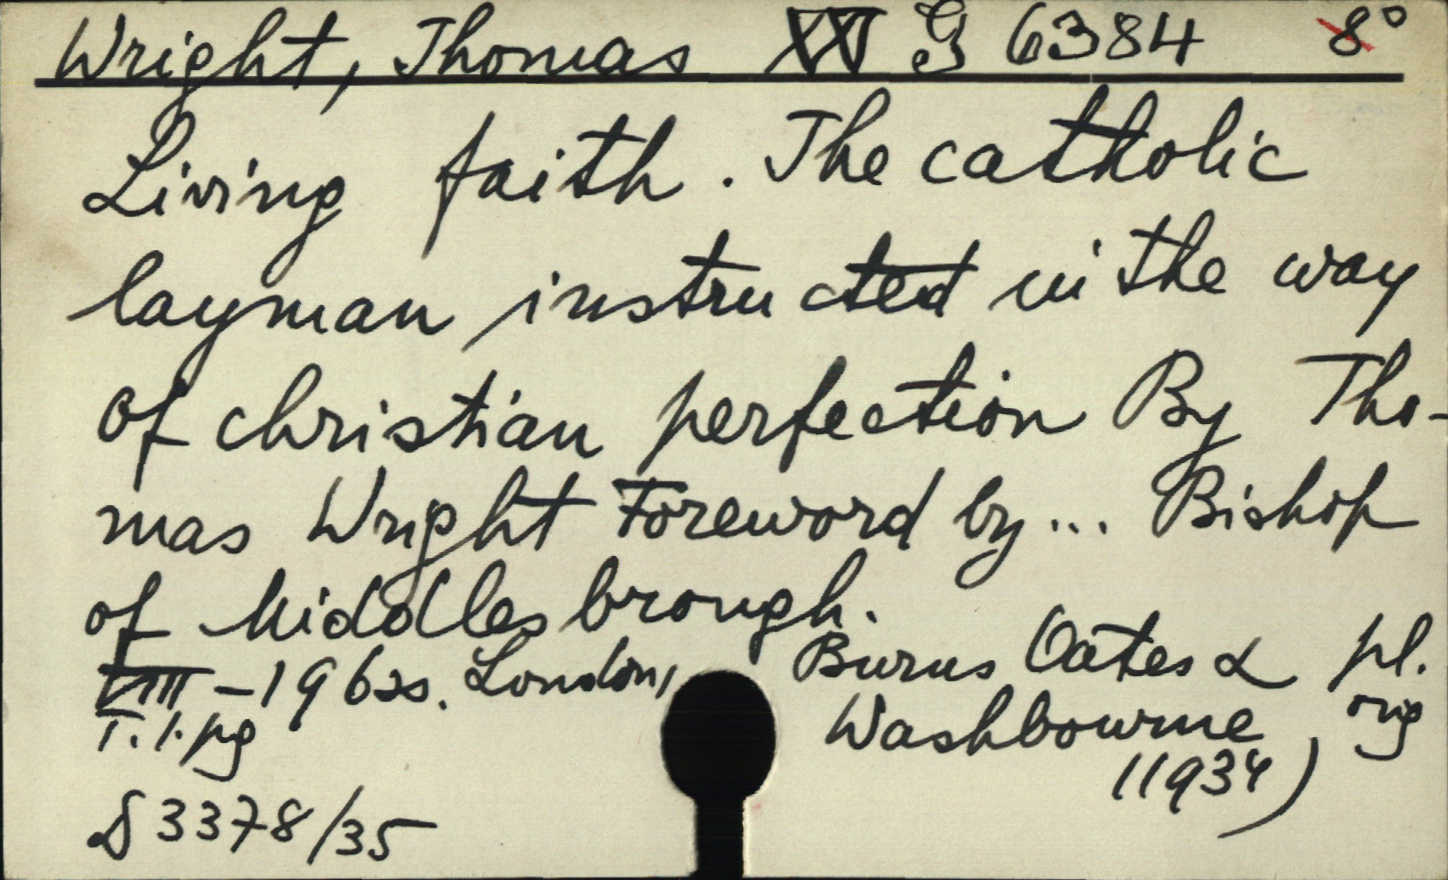 Wright, Thomas XV G 6384 8°
Living faith. The catholic
layman instructed in the way
of christian perfection By Tho-
mas Wright Foreword by... Bishop
of Middlesbrough.
VIII - 196 2s. London, Burns Oates & pl.
T. 1. pg Washbourne orig
(1934)
D 3378/35